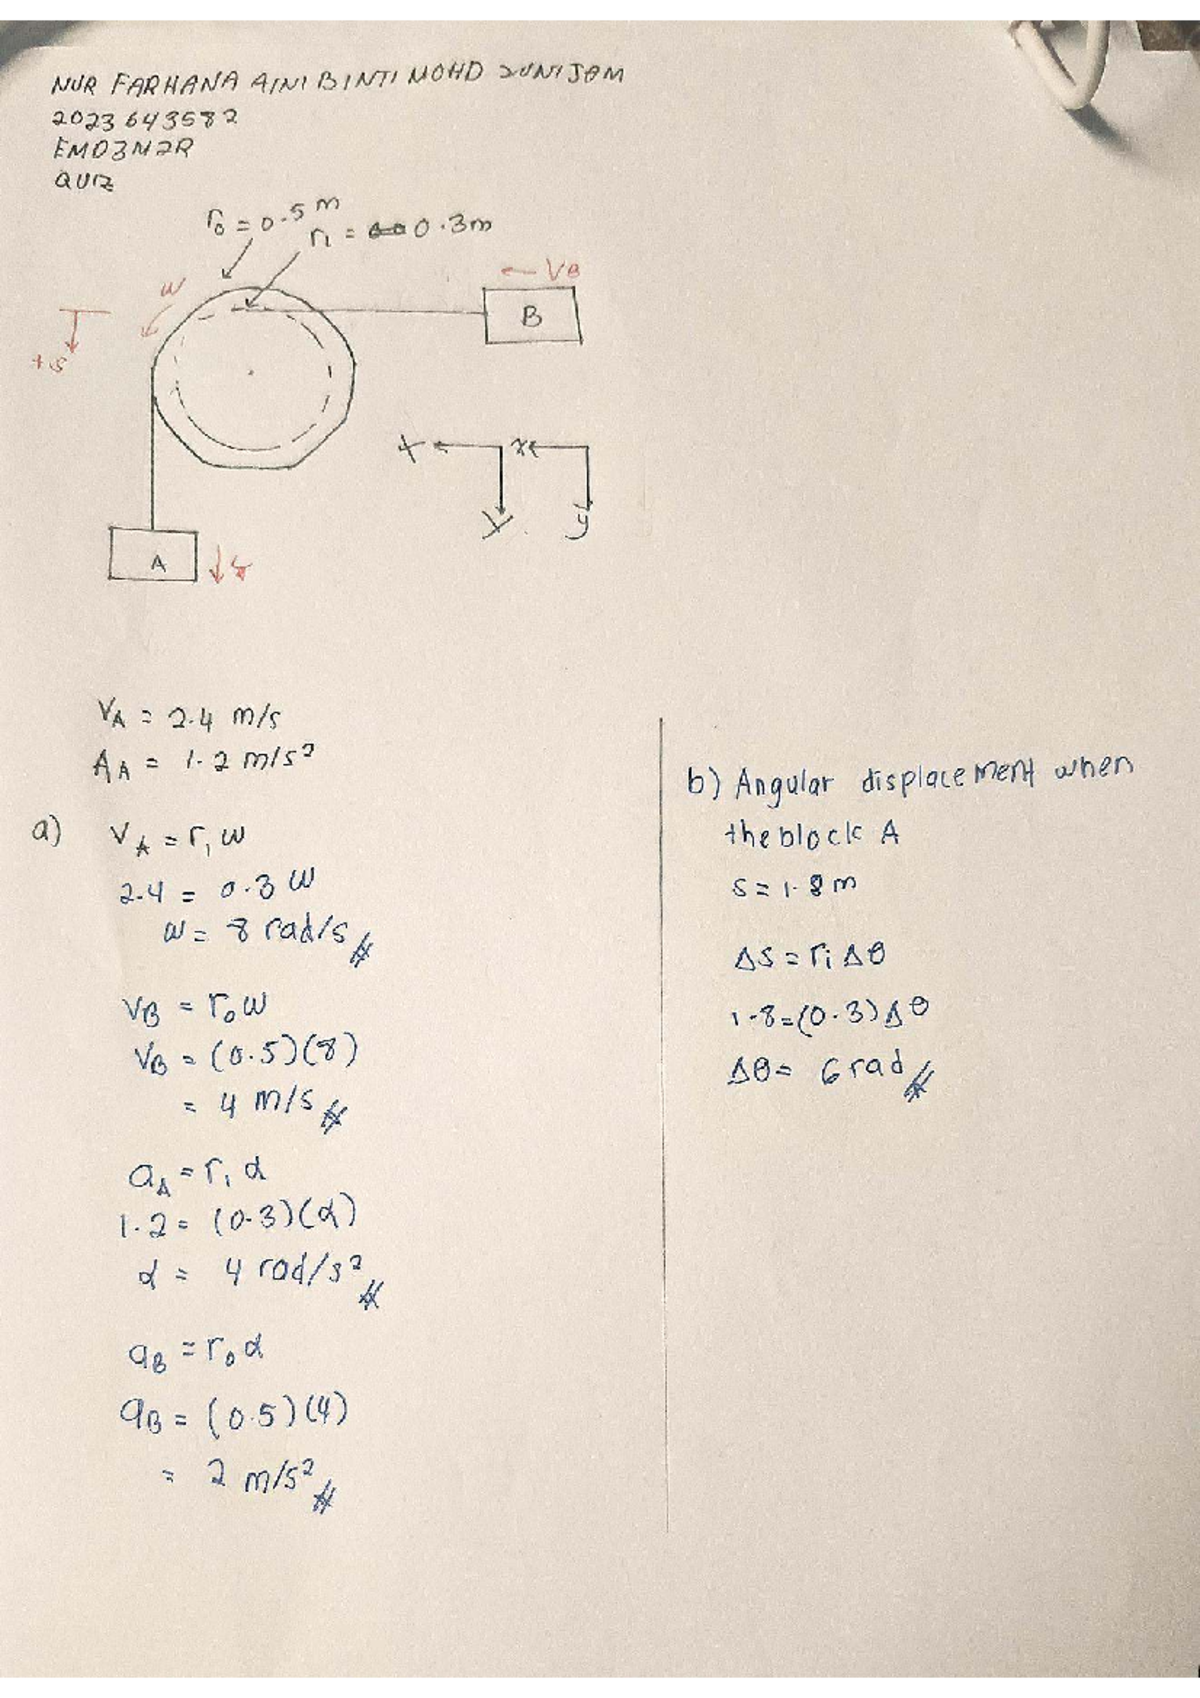 NUR FARHANA AINI BINTI MOHD ZUNIJAM
2023643582
EMD3M2R
QUIZ
r₀ = 0.5 m
r₁ = 0.3m
ω
← VB
B
+s
x x
y y
A
VA = 2.4 m/s
AA = 1.2 m/s²
a) VA = r₁ω
2.4 = 0.3 ω
ω = 8 rad/s
VB = r₀ω
VB = (0.5)(8)
= 4 m/s
aA = r₁ α
1.2 = (0.3)(α)
α = 4 rad/s²
aB = r₀α
aB = (0.5)(4)
= 2 m/s²
b) Angular displacement when
the block A
s = 1.8m
Δs = ri Δθ
1.8=(0.3)Δθ
Δθ = 6 rad